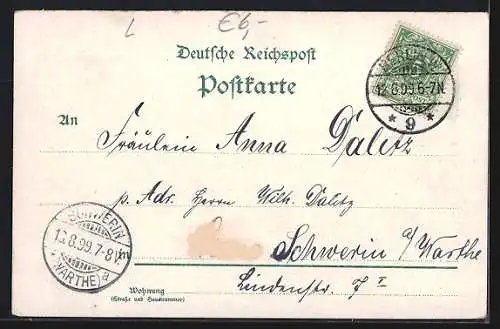 €6,-
Deutsche Reichspost
Postkarte
An
Fräulein Anna Dalitz
p. Adr. Herrn Wilh. Dalitz
in Schwerin a/ Warthe
Wohnung
(Straße und Hausnummer)
Lindenstr.
12.8.99.6-7N.
* 9 *
SCHWERIN
13.8.99.7-8V.
(WARTHE) a